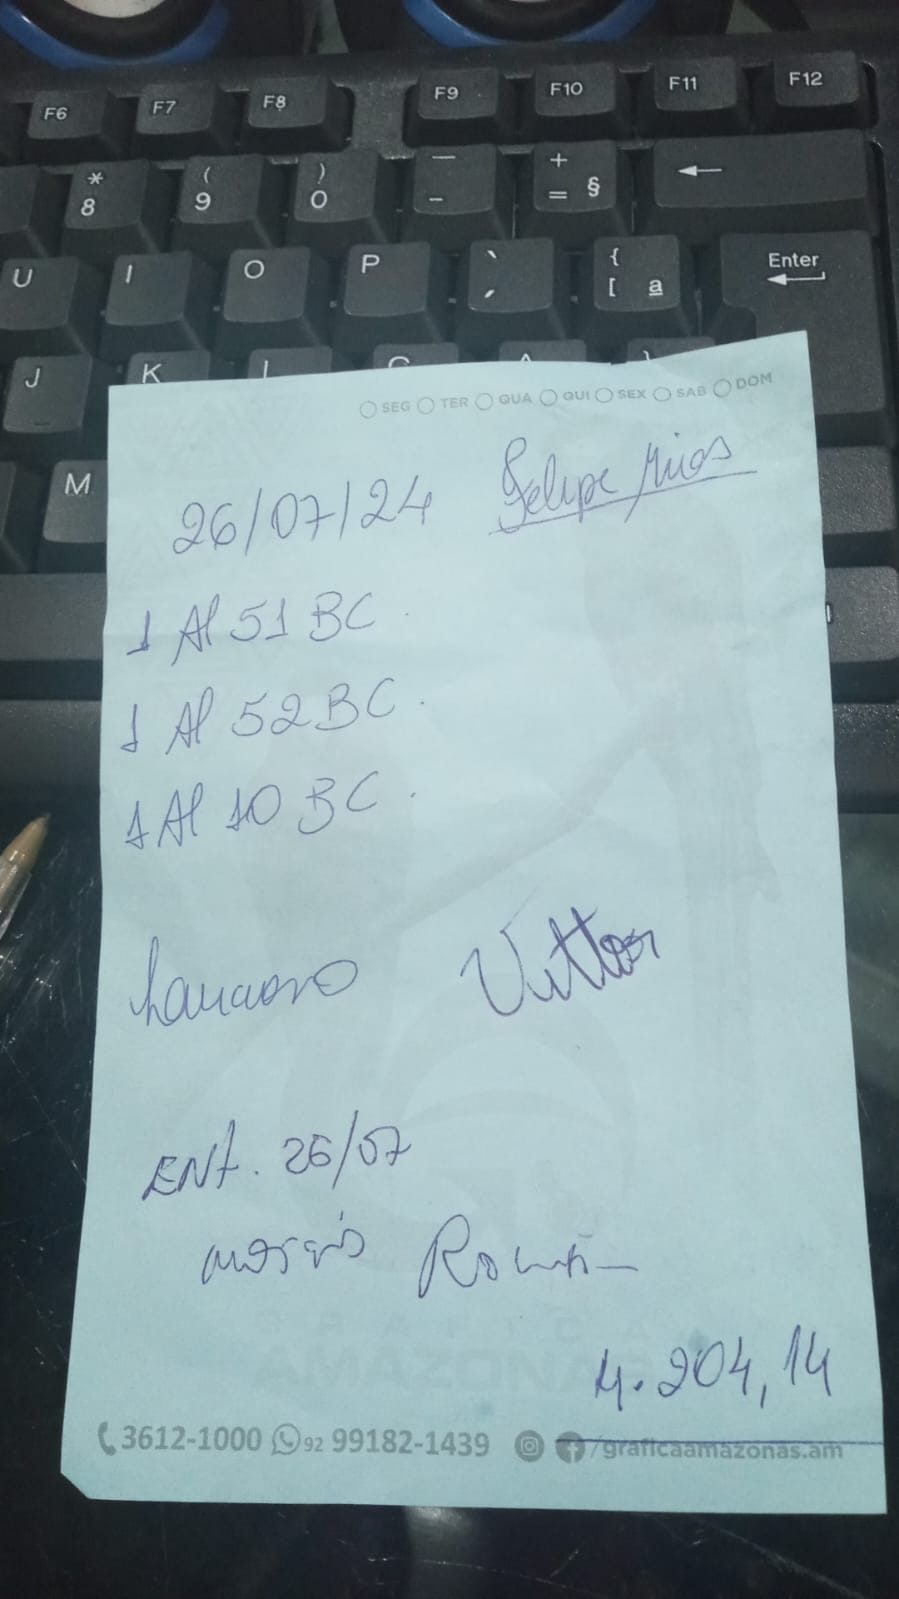 F6 F7 F8 F9 F10 F11 F12
* 8 ( 9 ) 0 — - + = § ←
U I O P ` ´ { [ ª Enter
J K L Ç
M
SEG TER QUA QUI SEX SAB DOM
26/07/24 Felipe
1 Al 51 BC.
1 Al 52 BC.
1 Al 10 BC.
Vittor
ENT. 26/07
4.204,14
GRÁFICA
AMAZONAS
3612-1000 92 99182-1439 /graficaamazonas.am